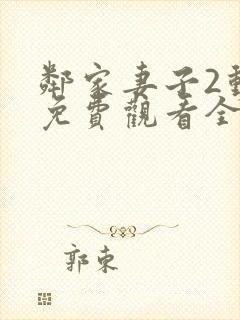 鄰家妻子2
免費觀看全
郭東